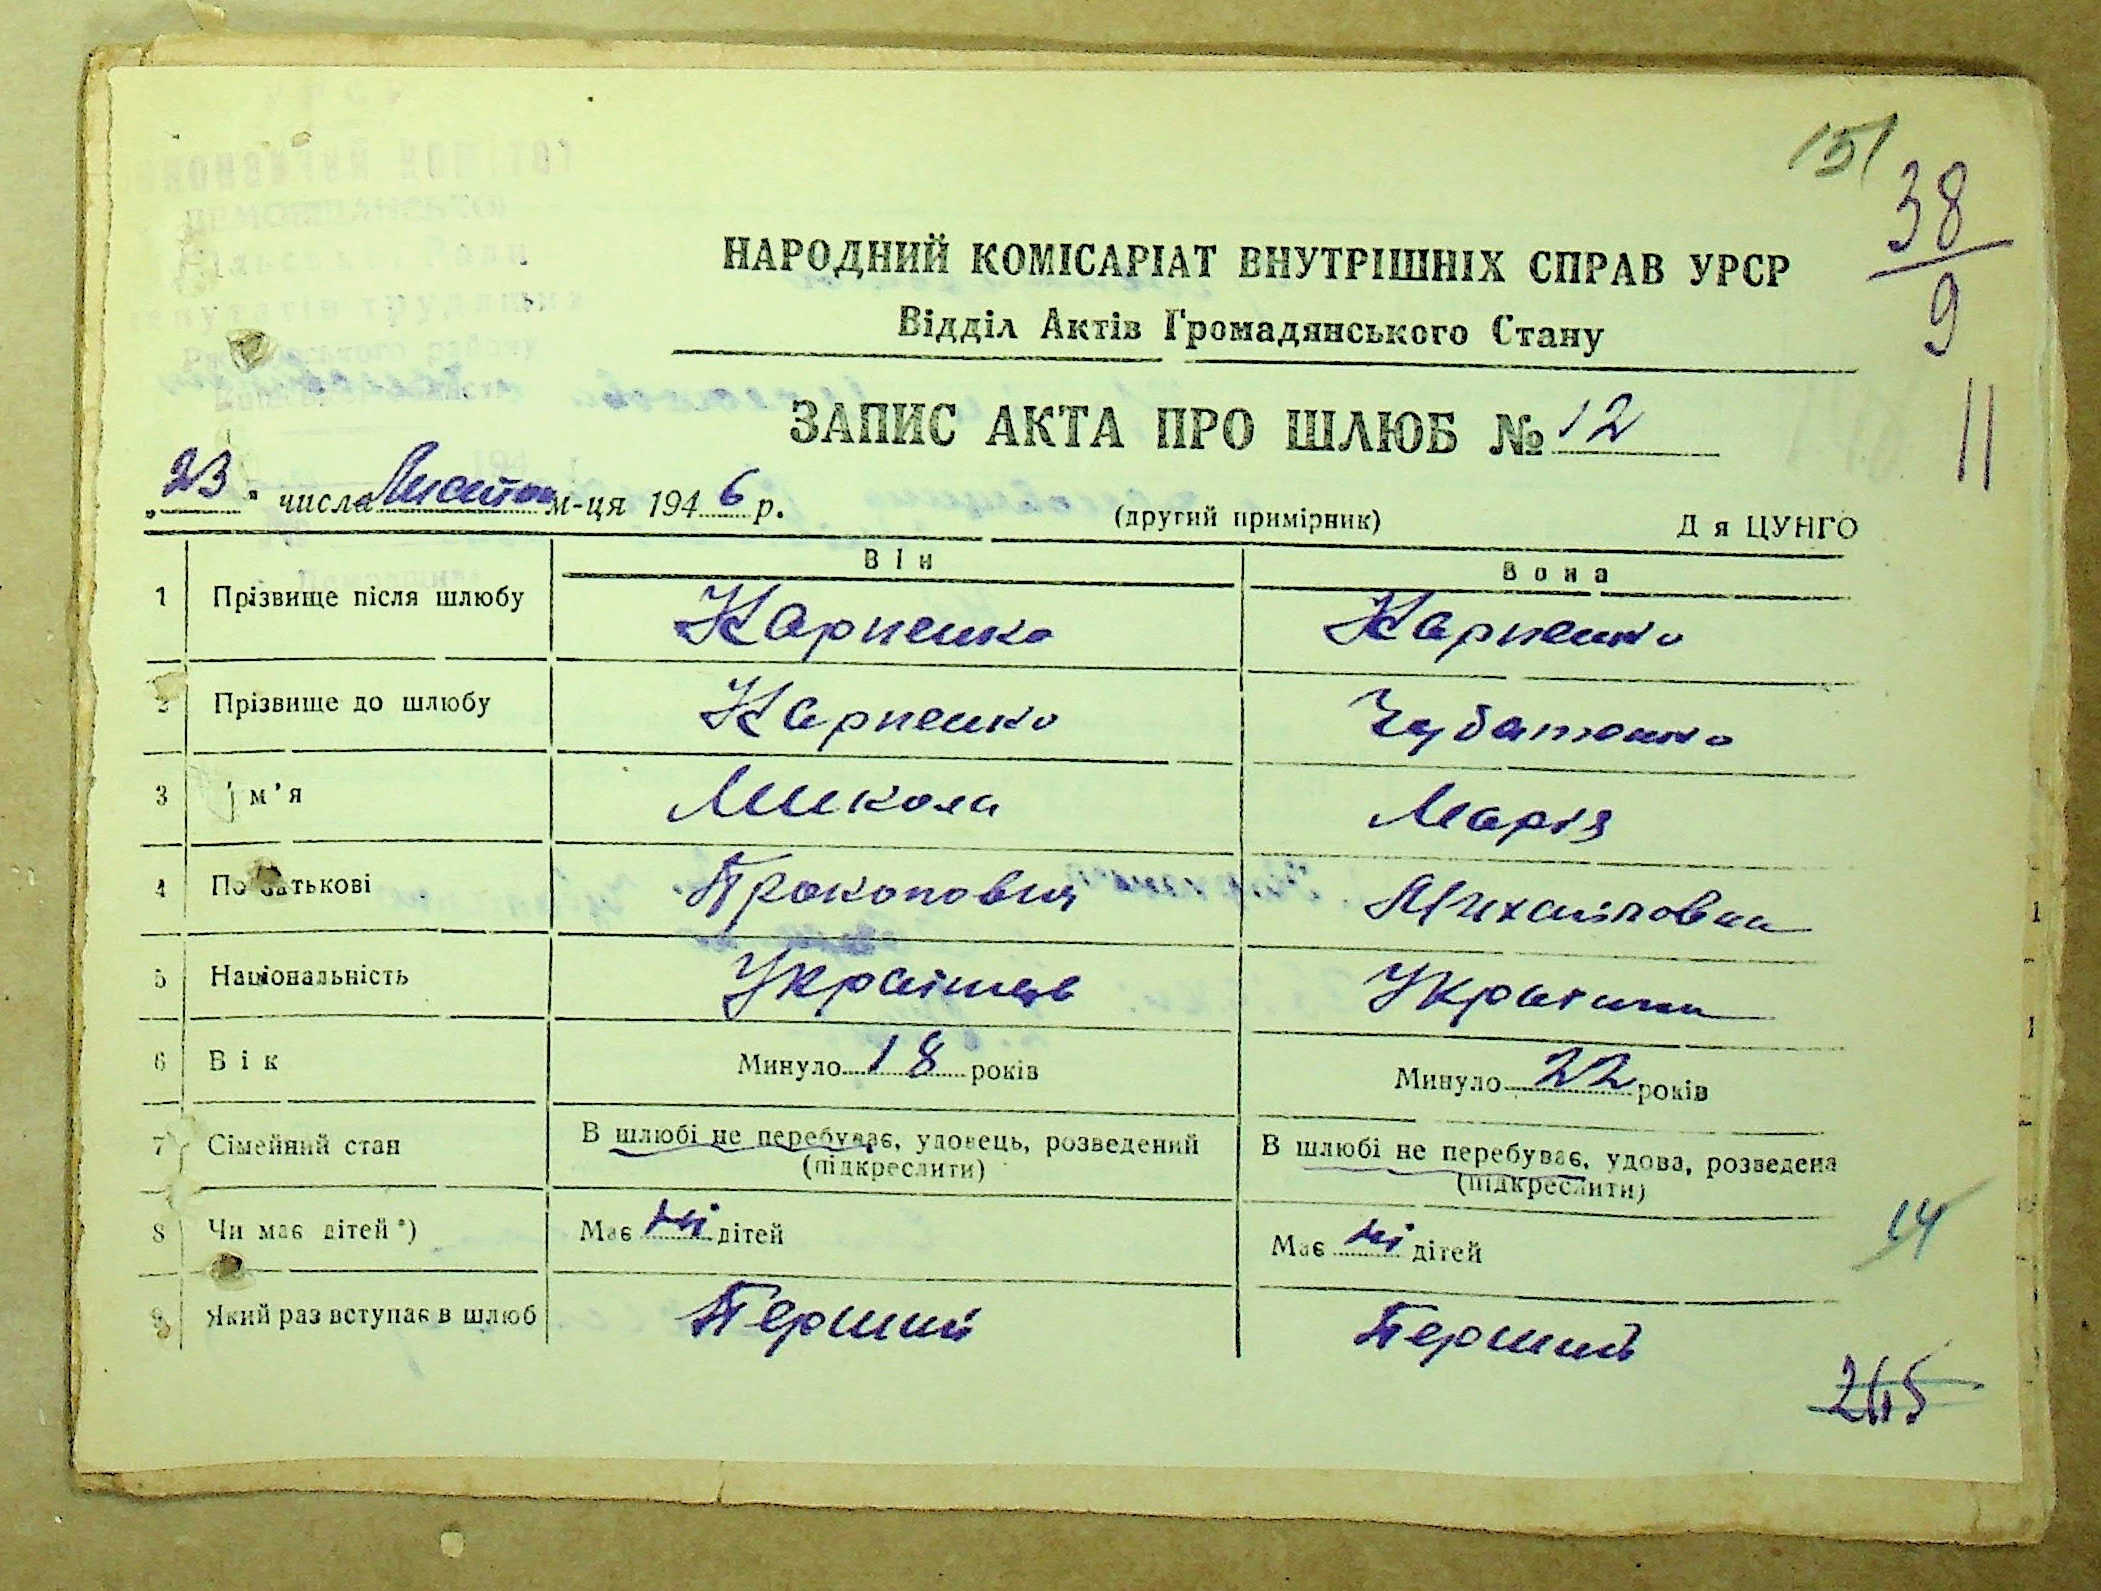 151
38
9
11
НАРОДНИЙ КОМІСАРІАТ ВНУТРІШНІХ СПРАВ УРСР
Відділ Актів Громадянського Стану
ЗАПИС АКТА ПРО ШЛЮБ № 12
„23" числа м-ця 1946 р.
(другий примірник) Д я ЦУНГО
Він Вона
1 Прізвище після шлюбу Карпенко Карпенко
2 Прізвище до шлюбу Карпенко Чубатенко
3 ім’я Микола Марія
4 По батькові Прокопович Михайловна
5 Національність Українець Українка
6 Вік Минуло 18 років Минуло 22 років
7 Сімейний стан В шлюбі не перебуває, удовець, розведений В шлюбі не перебуває, удова, розведена
(підкреслити) (підкреслити)
8 Чи має дітей*) Має ні дітей Має ні дітей
14
9 Який раз вступає в шлюб Перший Перший